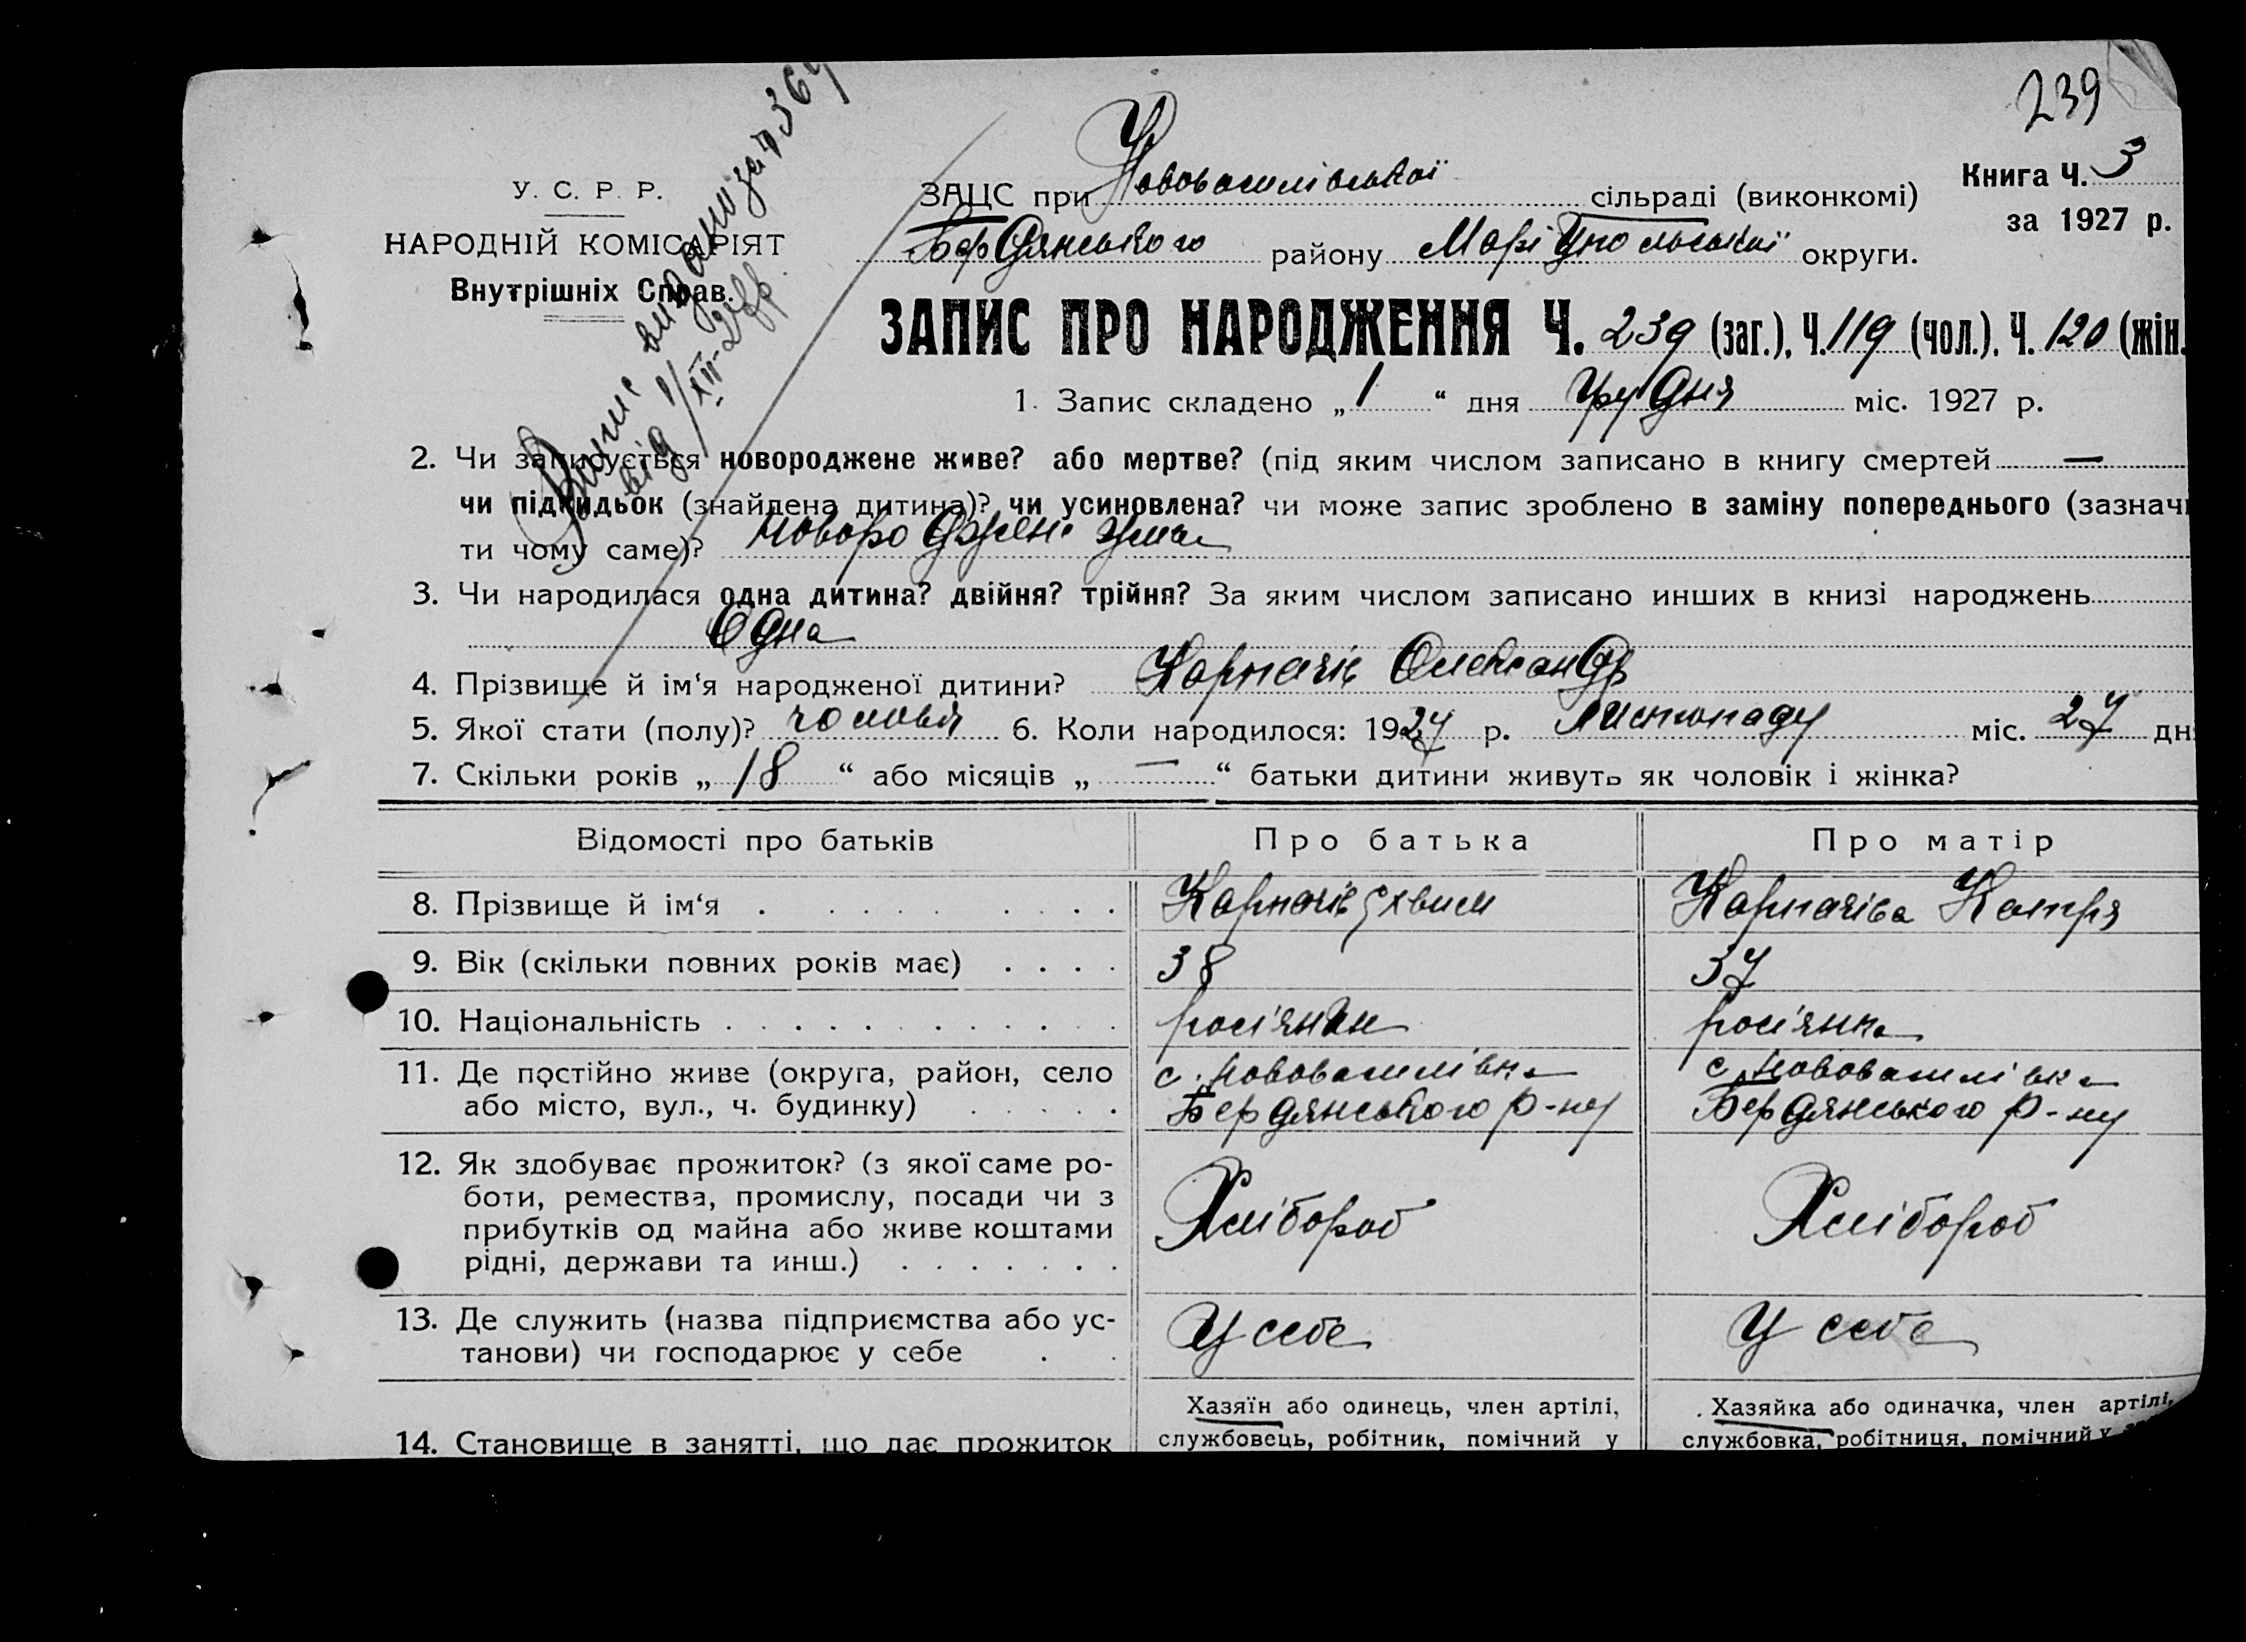 239
Книга Ч. 3
за 1927 р.
У. С. Р. Р.
НАРОДНІЙ КОМІСАРІЯТ
Внутрішніх Справ.
Выпис видано за № 364
від 1/XII-27р
ЗАЦС при Нововасилівської сільраді (виконкомі)
Бердянського району Маріупольської округи.
ЗАПИС ПРО НАРОДЖЕННЯ Ч. 239 (заг.), Ч. 119 (чол.), Ч. 120 (жін.
1. Запис складено „ 1 “ дня Грудня міс. 1927 р.
2. Чи записується новороджене живе? або мертве? (під яким числом записано в книгу смертей —
чи підкидьок (знайдена дитина)? чи усиновлена? чи може запис зроблено в заміну попереднього (зазначи
ти чому саме)? новороджене живе
3. Чи народилася одна дитина? двійня? трійня? За яким числом записано инших в книзі народжень
Одна
4. Прізвище й ім‘я народженої дитини? Карпачів Олександр
5. Якої стати (полу)? чоловіч 6. Коли народилося: 1927 р. Листопаду міс. 27 дн
7. Скільки років „ 18 “ або місяців „ — “ батьки дитини живуть як чоловік і жінка?
Відомості про батьків Про батька Про матір
8. Прізвище й ім‘я Карпачів Єхвим Карпачіва Катря
9. Вік (скільки повних років має) 38 37
10. Національність росіянин росіянка
11. Де постійно живе (округа, район, село с. Нововасилівка с. Нововасилівка
або місто, вул., ч. будинку) Бердянського р-ну Бердянського р-ну
12. Як здобуває прожиток? (з якої саме ро-
боти, ремества, промислу, посади чи з
прибутків од майна або живе коштами Хлібороб Хлібороб
рідні, держави та инш.)
13. Де служить (назва підприємства або ус- У себе У себе
танови) чи господарює у себе
Хазяїн або одинець, член артілі, Хазяйка або одиначка, член артілі,
14. Становище в занятті, що дає прожиток службовець, робітник, помічний у службовка, робітниця, помічний у